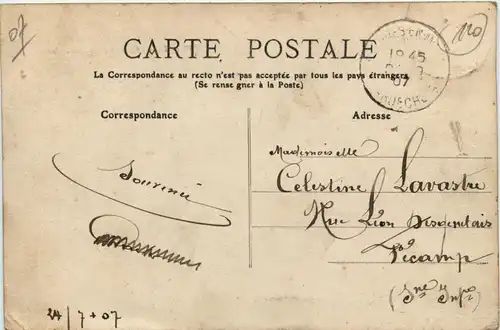 07
120
CARTE POSTALE
La Correspondance au recto n'est pas acceptée par tous les pays étrangers
(Se rense gner à la Poste)
1945
07
Correspondance
Adresse
Mademoiselle
Souvenir
Celestine Lavastre
Rue Léon Degenetais
Fécamp
(Sne Infre)
24/7+07